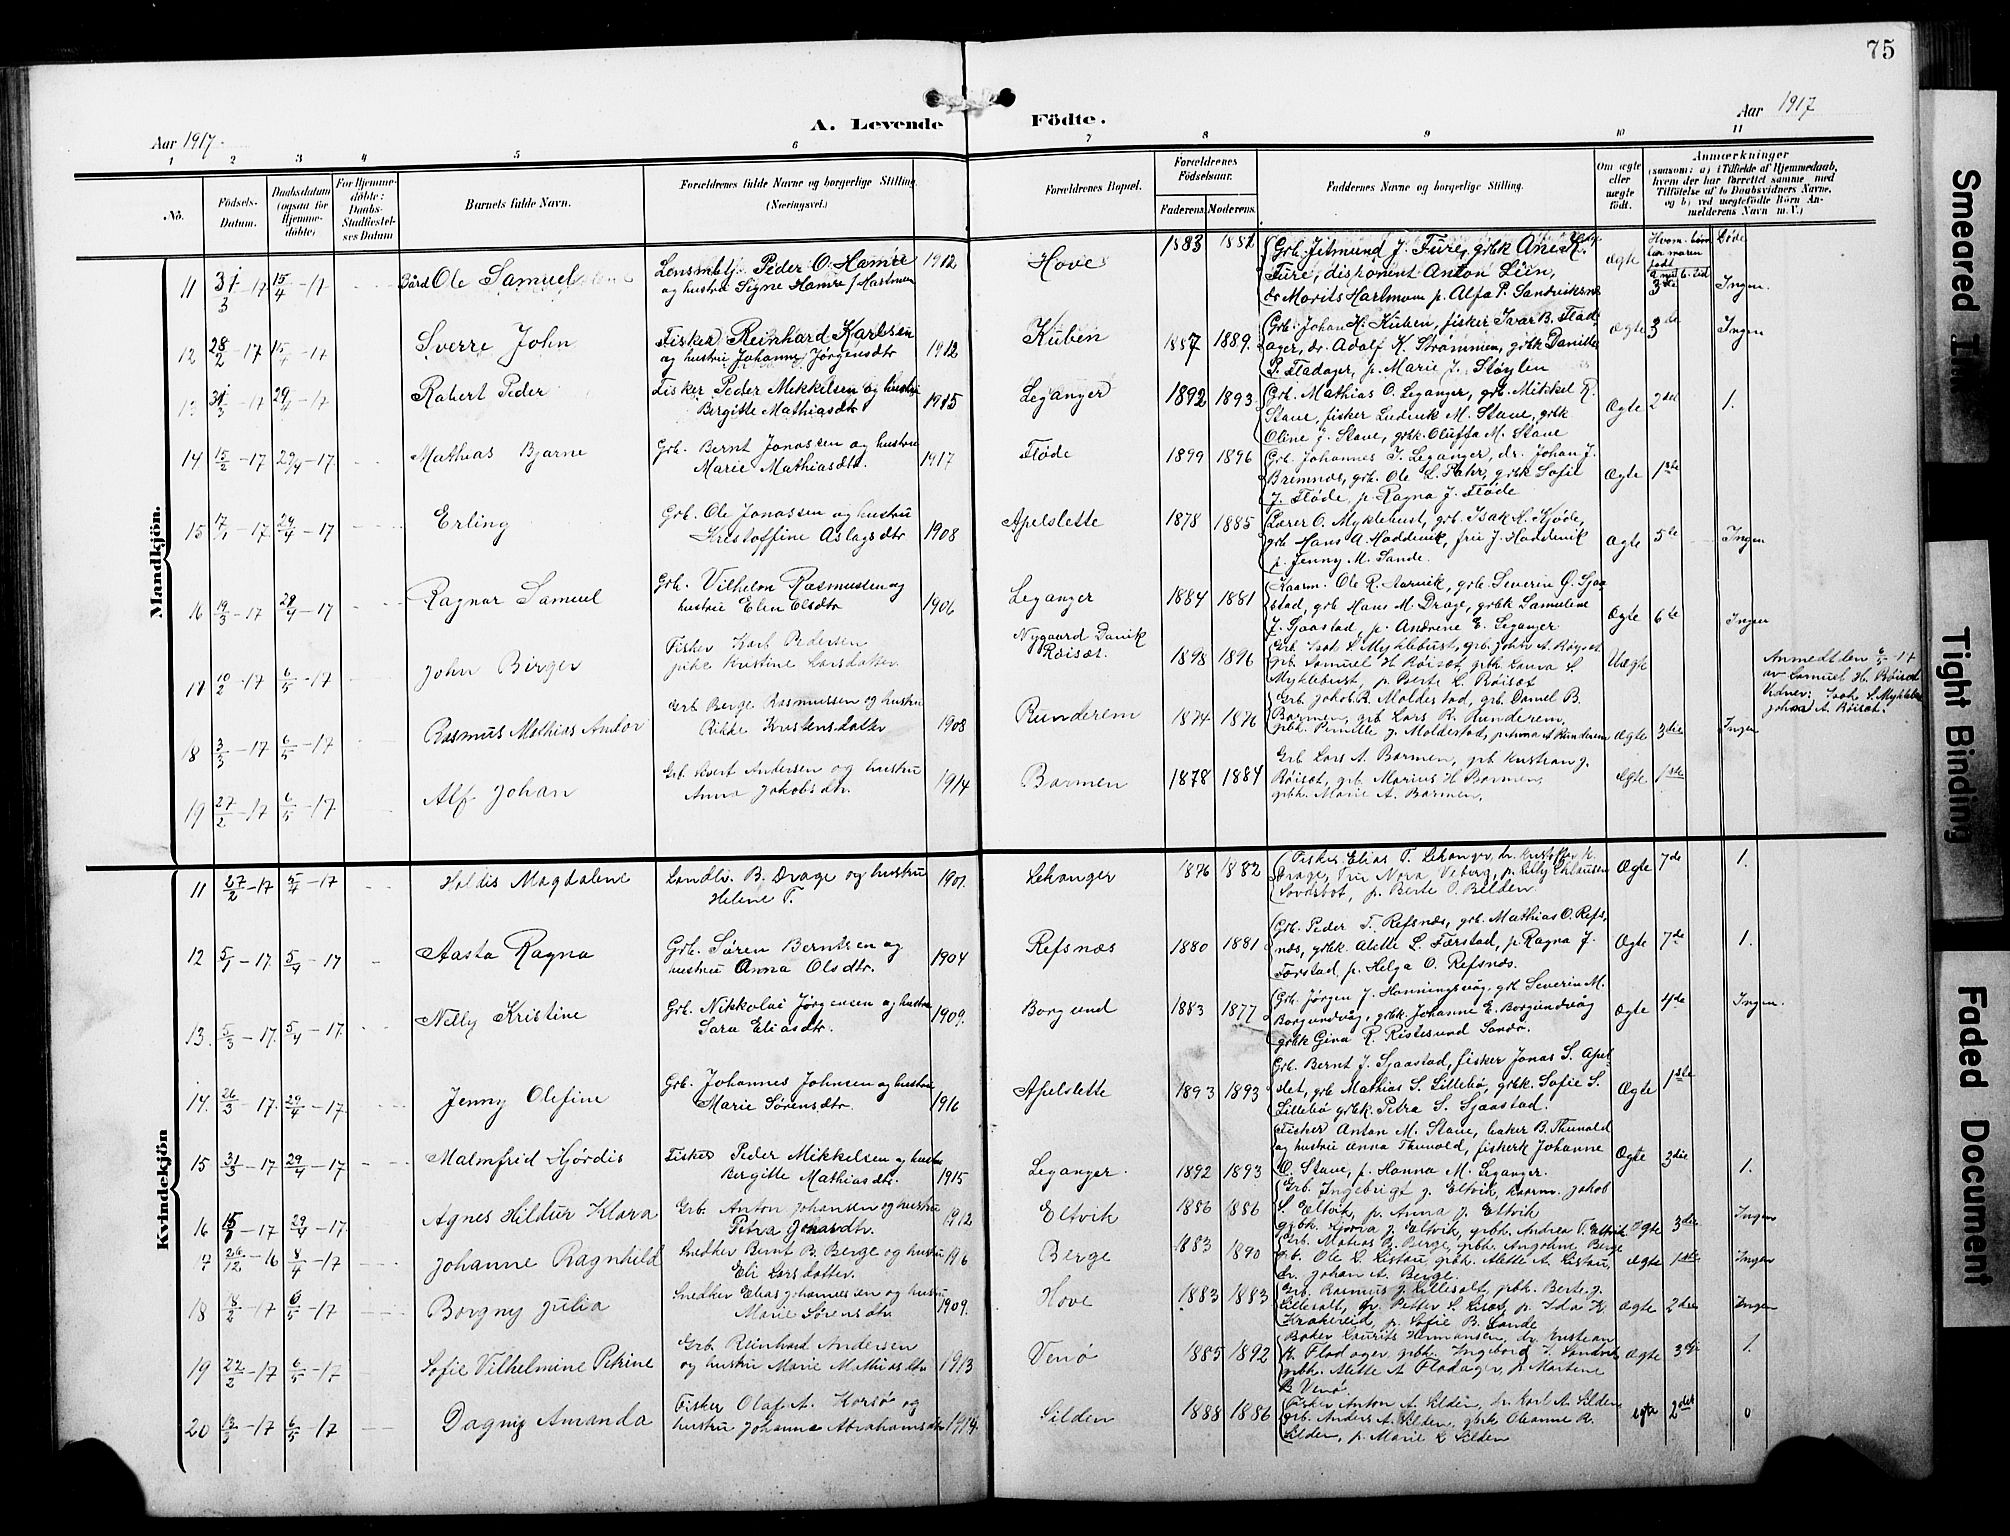 75
Aar 1917
A. Levende Födte.
Aar 1917
1 2 3 4 5 6 7 8 9 10 11
No.
Födsels-Datum.
Daabsdatum (ogsaa for Hjemmedöbte)
For Hjemmedöbte: Daabs-Stadfæstelses Datum
Barnets fulde Navn.
Forældrenes fulde Navne og borgerlige Stilling. (Næringsvei.)
Forældrenes Bopæl.
Forældrenes Födselsaar.
Faderens. Moderens.
Faddernes Navne og borgerlige Stilling.
Om ægte eller uægte født.
Anmærkninger
(saasom: a) i Tilfælde af Hjemmedaab, hvem der har forrettet samme med Tilføielse af to Daabsvidners Navne, og b) ved uægtefödte Börn Anmelderens Navn m. V.)
Mandkjön.
11 31/3-17 15/4-17 Ole Samuel
Lensmbetj. Peder O. Hamre og hustru Signe Hamre f. Hartman 1912
Hove 1883 1881
Grb. Jetmund J. Fure, grbk Ane K. Fure, disponent Anton Liin, dr Morits Hartmann p. Alfa P. Sandviksnes
ægte 3die Ingen.
12 28/2-17 15/4-17 Sverre John
Fisker Reinhard Karlsen og hustru Johanne Jørgensdtr 1912
Kuben 1887 1889.
Grb. Johan H. Kuben, fisker Ivar B. Fladager, dr. Adolf K. Strømmen, grbk Danitte P. Fladager, p. Marie J. Støylen
ægte 3de Ingen
13 31/3-17 29/4-17 Robert Peder
Fisker Peder Mikkelsen og hustru Bergitte Mathiasdtr 1915
Leganger 1892 1893
Grb. Mathias O. Leganger, grb. Mikkel R. Stave, fisker Ludvik M. Stave, grbk Oline J. Stave, grbk. Oluffa M. Stave
Ægte 2den 1.
14 15/2-17 29/4-17 Mathias Bjarne
Grb. Bernt Jonassen og hustru Marie Mathiasdtr. 1917
Fløde 1899 1896
Grb. Johannes T. Leganger, dr. Johan J. Bremnes, grb. Ole L. Fahr, grbk Sofie J. Fløde, p. Ragna J. Fløde
Ægte 1ste
15 17/1-17 29/4-17 Erling
Grb. Ole Jonassen og hustru Kristoffine Aslagsdtr 1908
Apelslette 1878 1885
Lærer O. Myklebust, grb. Isak K. Kjøde, grb Hans A. Haddevik, fru J. Haddevik p. Jenny M. Sande
Ægte 5te Ingen
16 19/3-17 29/4-17 Ragnar Samuel
Grb. Vilhelm Rasmussen og hustru Elen Olsdtr 1906
Leganger 1884 1881
Kaarm. Ole R. Aarvik, grb. Severin O. Sjaastad, grb Hans M. Drage, grbk Samuline J. Sjaastad, p. Andrene E. Leganger
Ægte 6te Ingen
17 10/2-17 6/5-17 John Birger
Fisker Karl Pedersen pike Kristine Larsdatter
Nygaard Davik Røiset. 1898 1896
Grb. Isak S. Myklebust, grb. John A. Røyset grb. Samuel H Røiset grbk Laura S. Myklebust, p. Berte L. Røiset
Uægte
Anmeldt den 6/5-17 av Samuel H. Røiset Vidner: Isak S. Myklebust John A. Røiset.
18 3/3-17 6/5-17 Rasmus Mathias Andor
Grb Berge Rasmussen og hustru Rikke Kristensdatter 1908
Runderem 1874 1876
Grb. Jakob R. Moldestad, grb. Daniel B. Barmen, grb. Lars R. Runderem, grbk. Pernille J. Moldestad, p. Anna A Runderem
Ægte 3die Ingen
19 27/2-17 6/5-17 Alf Johan
Grb. Andersen og hustru Anna Jakobsdtr. 1914
Barmen 1878 1884
Grb Lars A. Barmen, grb Kristian J. Røiset, grb. Marius H Barmen, grbk. Marie A. Barmen,
Ægte 1ste
Kvindekjön
11 27/2-17 5/4-17 Haldis Magdalene
Landh. B. Drage og hustru Helene T. 1901.
Lekanger 1876 1882
Fisker Elias T. Lekanger, dr. Kristoffer K. Drage, fru Nora Veberg, p. Lilly Eklausen Lovdsbot, p. Berte O. Belden
Ægte 7de 1.
12 5/1-17. 5/4-17 Aasta Ragna
Grb. Søren Berntsen og hustru Anna Olsdtr. 1904
Refsnæs 1880 1881
Grb. Peder T. Refsnæs, grb. Mathias O. Refsnæs, grbk. Alette L. Færstad, p. Ragna J. Færstad, p. Helga O. Refsnæs.
Ægte 7de 1.
13. 5/3-17. 5/4-17 Nelly Kristine
Grb. Nikkolai Jørgensen og hustru Sara Eliasdtr. 1909.
Borgund 1883 1877
Grb. Jørgen J. Honningsvåg, grb Severin M. Borgundvåg, grbk. Johanne E. Borgundvåg grbk Gina R. Ristesund Sandr.
Ægte 4de Ingen.
14. 26/3-17. 29/4-17 Jenny Olefine
Grb. Johannes Johnsen og hustru Marie Sørensdtr. 1916
Apelslette 1893 1893
Grb. Bernt J. Sjaastad, fisker Jonas S. Apelslet, grb Mathias S. Lillebø, grbk. Sofie S. Lillebø grbk. Petra S. Sjaastad.
Ægte 1ste
15 31/3-17 29/4-17 Malmfrid Hjørdis
Fisker Peder Mikkelsen og hustru Bergitte Mathiasdtr. 1915
Leganger. 1892 1893
Fisker Anton M. Stave, baker B. Thunold og hustru Anna Thunold, fiskerk Johanne O. Stave, p. Hanna M. Leganger.
Ægte 3die 1.
16 15/3-17 29/4-17. Agnes Hildur Klara
Grb. Anton Johansen og hustru Petra Jonasdtr. 1912
Eltvik 1886 1886
Grb. Ingebrigt J. Eltvik, kaarm. Jakob S. Eltvik, p. Anna J. Eltvik grbk. Gjøria J. Eltvik, grbk. Andrea T. Eltvik
Ægte 3die Ingen
17 26/12-16 8/4-17 Johanne Ragnhild
Snedker Bernt B. Berge og hustru Eli Larsdatter. 1916
Berge 1883 1890
Grb. Matias B. Berge, grbk. Angoline Berge grb. Ole L. Listau, grbk. Alette A. Listau, dr. Johan A. Berge.
Ægte 1ste Ingen
18 18/2-17 6/5-17 Borgny Julia
Snedker Elias Johannessen og hustru Marie Sørensdtr. 1909.
Hove 1883 1883
Grb. Rasmus J. Lillesalt, grbk. Berte J. Lillesalt, dr. Petter S. Liset, p. Ida K. Krakereid, p. Sofie B. Sande
Ægte 2den Ingen
19 22/2-17 6/5-17 Sofie Vilhelmine Petrine
Grb. Reinhard Andersen og hustru Marie Mathiasdtr 1913
Venø 1885 1892
Baker Laurits Hermansen, dr. Kristian K. Fladager grbk. Ingeborg I. Sandvik grbk. Alette A Fladager, p. Martene B Venø.
Ægte 3die 1.
20 13/3-17 6/5-17 Dagny Amanda
Fisker Olaf A. Horsø og hustru Johanna Abrahamsdtr 1914.
Silden 1888 1886
Fisker Anton A. Silden, dr. Karl A. Silden, grb. Anders A. Silden, grbk Oleanne R. Silden, p. Marie L Silden
Ægte 2det 0
Smeared Ink
Tight Binding
Faded Document